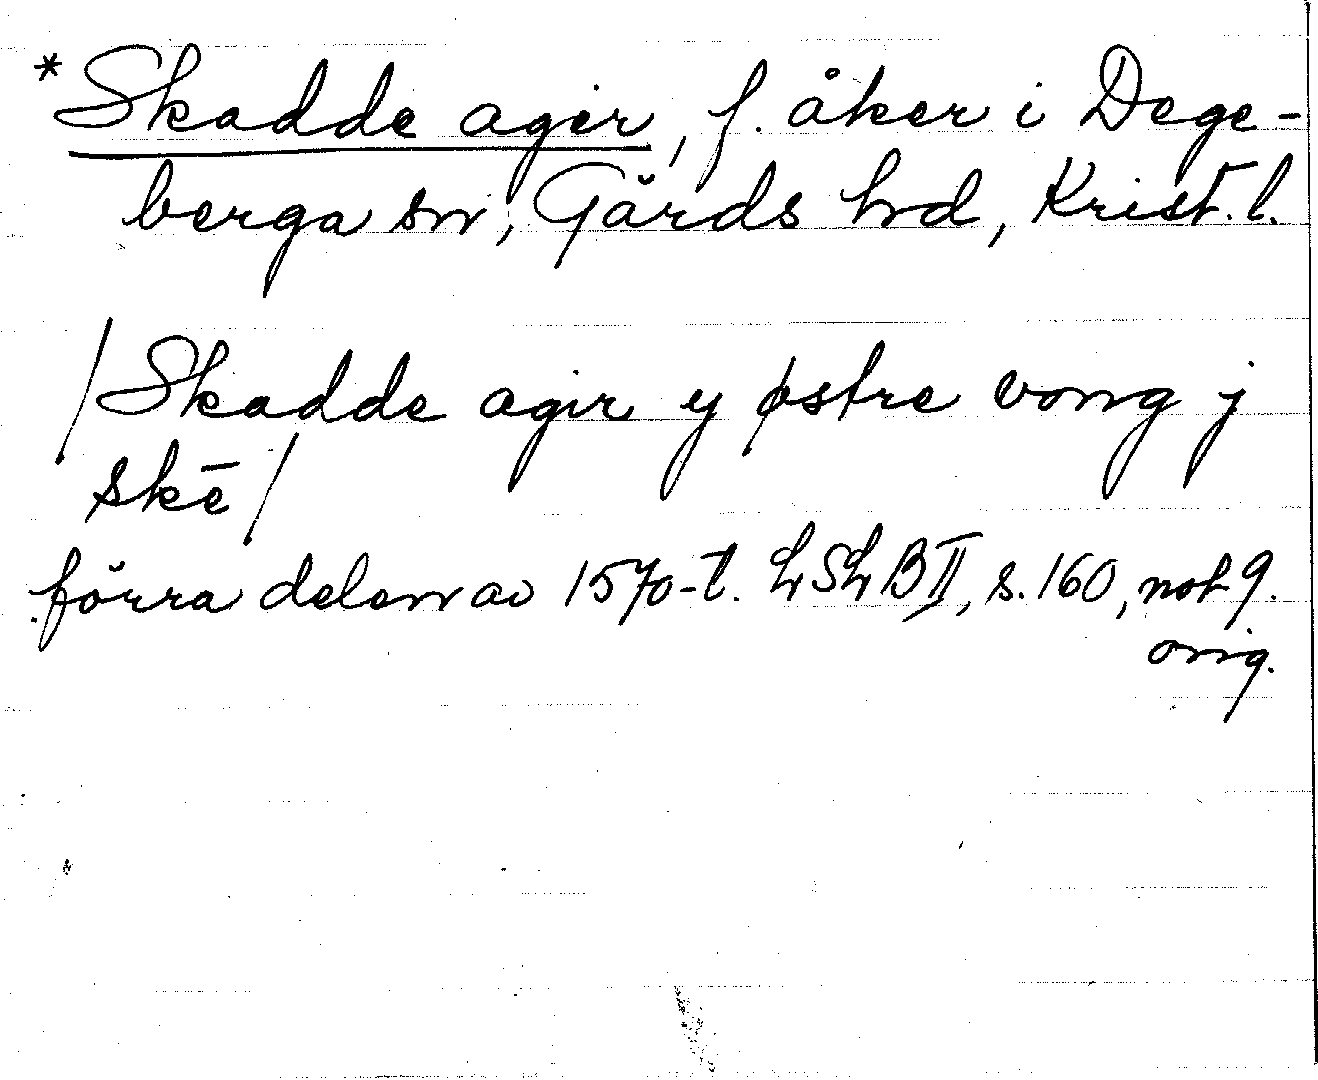 *Skadde ager, f. åker i Dege-
berga sn, Gärds hd, Krist. l.
/Skadde agir y østre vong j
skē/
förra delen av 1570-t. LSLB II, s. 160, not 9.
orig.